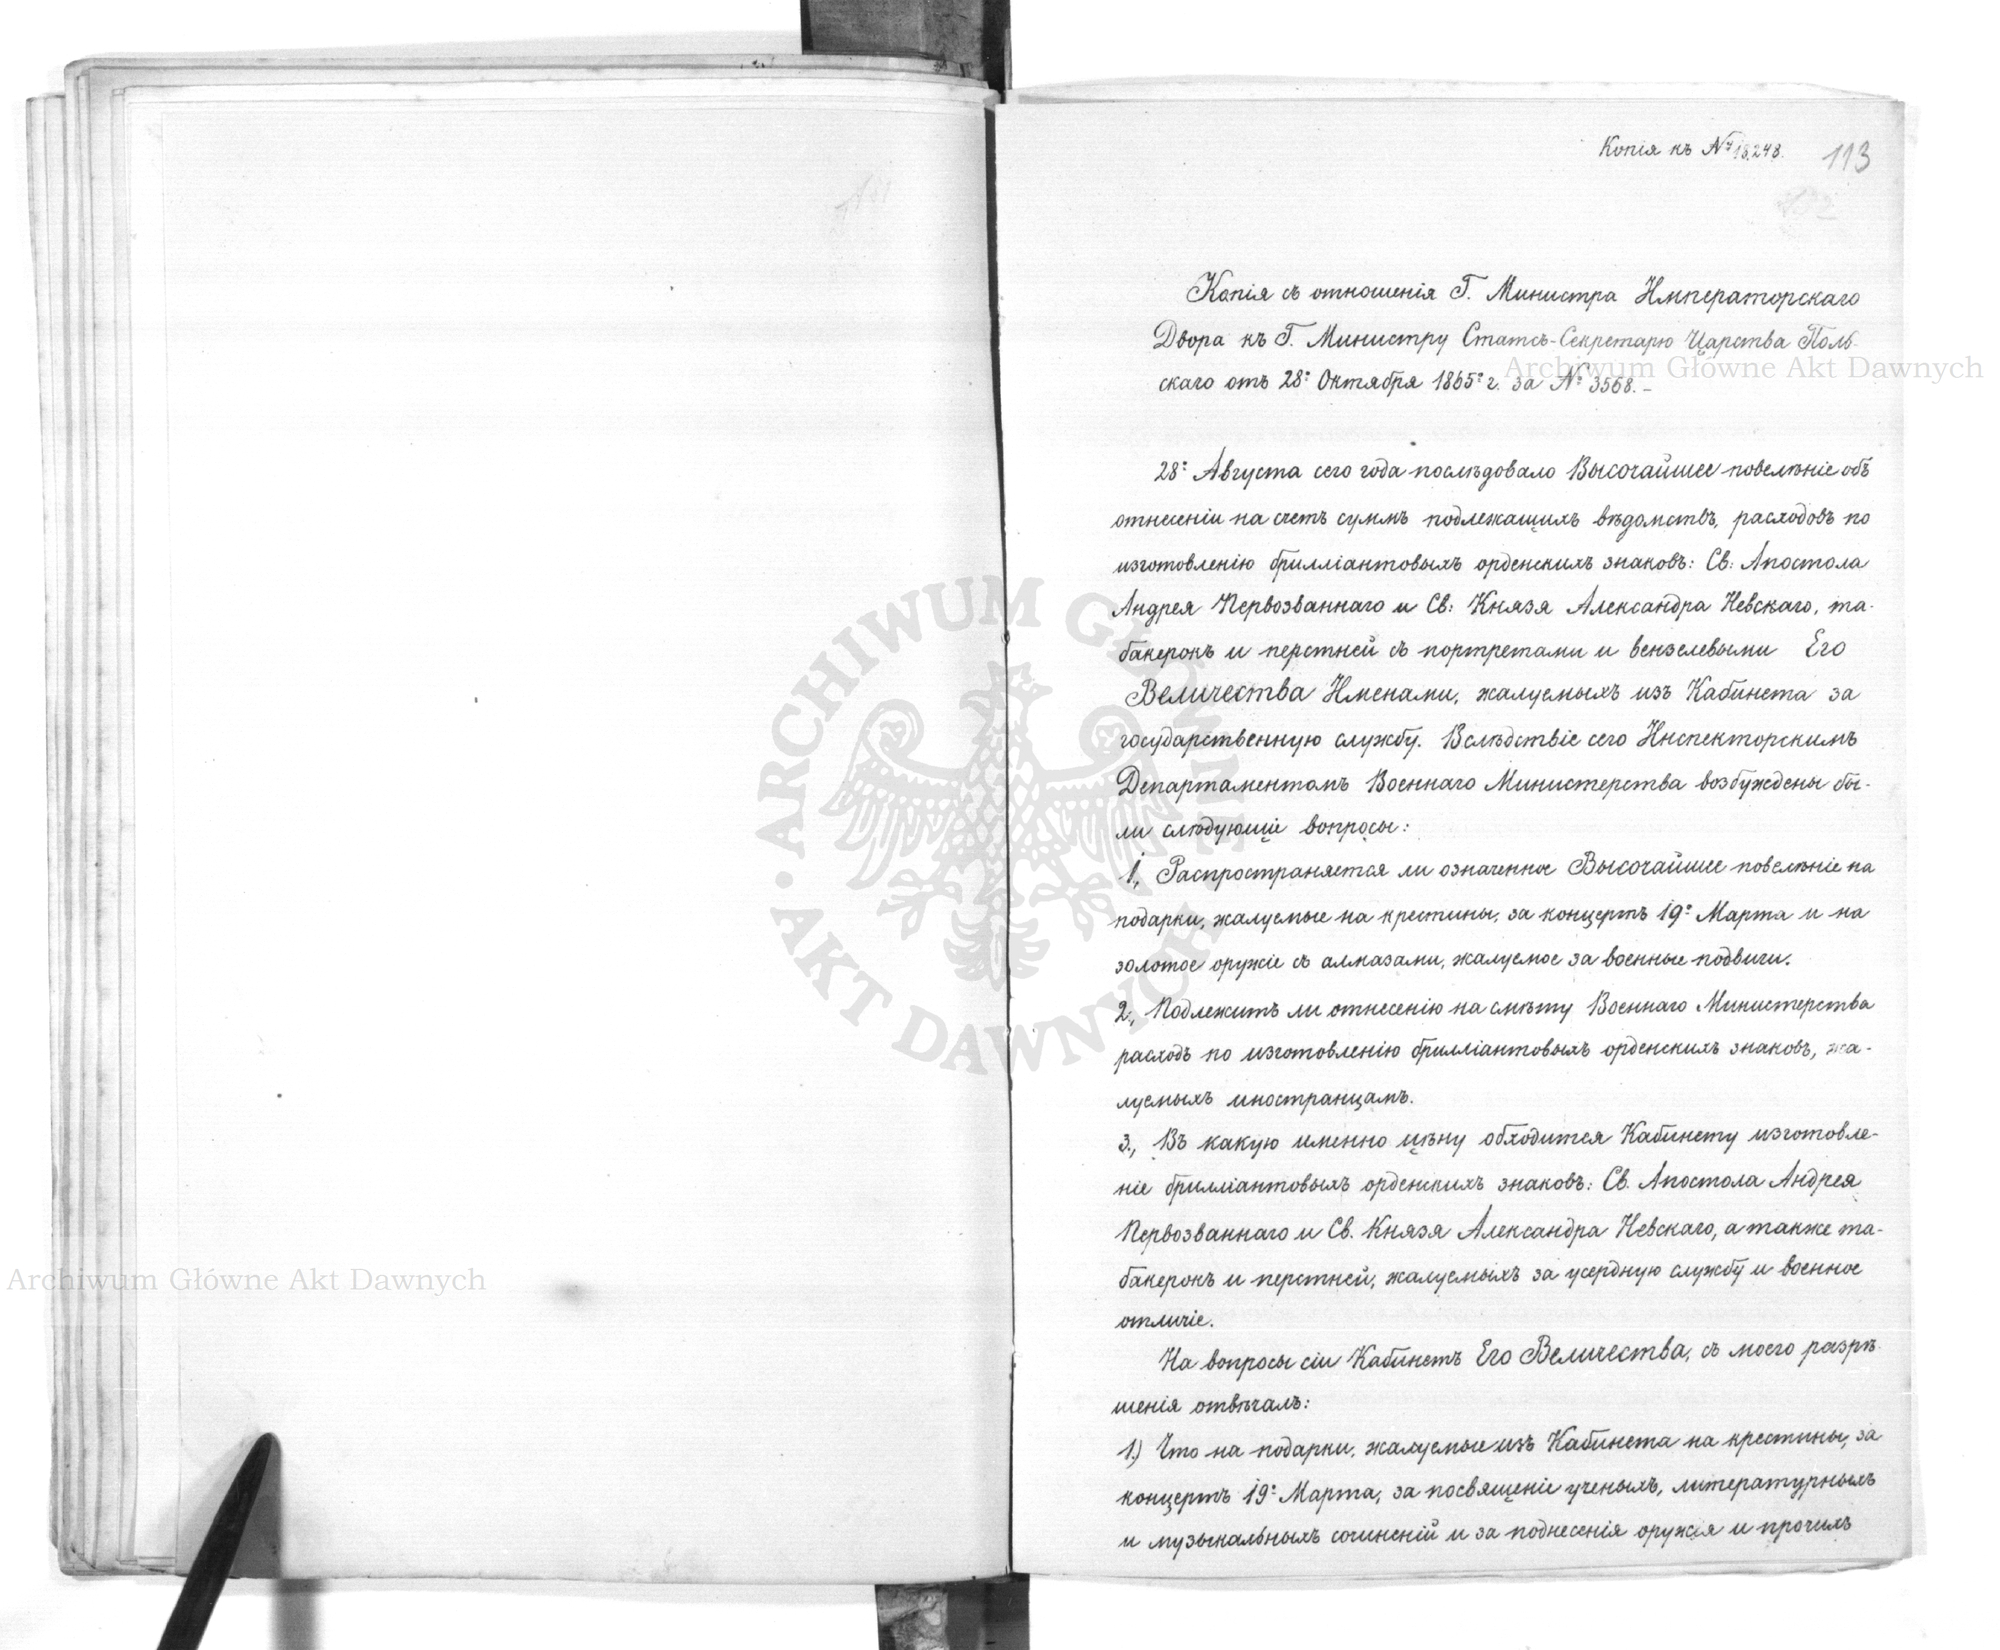 Копія къ № 18,248.
113
Копія съ отношенія Г. Министра Императорскаго
Двора къ Г. Министру Статсъ-Секретарю Царства Поль-
скаго отъ 28го Октября 1865го г. за № 3568.–
28го Августа сего года послѣдовало Высочайшее повелѣніе объ
отнесеніи на счетъ суммъ подлежащихъ вѣдомствъ, расходовъ по
изготовленію брилліантовыхъ орденскихъ знаковъ: Св: Апостола
Андрея Первозваннаго и Св: Князя Александра Невскаго, та-
бакерокъ и перстней съ портретами и вензелевыми Его
Величества Именами, жалуемыхъ изъ Кабинета за
государственную службу. Вслѣдствіе сего Инспекторскимъ
Департаментомъ Военнаго Министерства возбуждены бы-
ли слѣдующіе вопросы:
1., Распространяется ли означенное Высочайшее повелѣніе на
подарки, жалуемые на крестины, за концертъ 19го Марта и на
золотое оружіе съ алмазами, жалуемое за военные подвиги.
2., Подлежитъ ли отнесенію на смѣту Военнаго Министерства
расходъ по изготовленію брилліантовыхъ орденскихъ знаковъ, жа-
луемыхъ иностранцамъ.
3., Въ какую именно цѣну обходится Кабинету изготовле-
ніе брилліантовыхъ орденскихъ знаковъ: Св. Апостола Андрея
Первозваннаго и Св. Князя Александра Невскаго, а также та-
бакерокъ и перстней, жалуемыхъ за усердную службу и военное
отличіе.
На вопросы сіи Кабинетъ Его Величества, съ моего разрѣ-
шенія отвѣчалъ:
1.) Что на подарки, жалуемые изъ Кабинета на крестины, за
концертъ 19го Марта, за посвященіе ученыхъ, литературныхъ
и музыкальныхъ сочиненій и за поднесенія оружія и прочихъ
Archiwum Główne Akt Dawnych
Archiwum Główne Akt Dawnych
ARCHIWUM GŁÓWNE AKT DAWNYCH